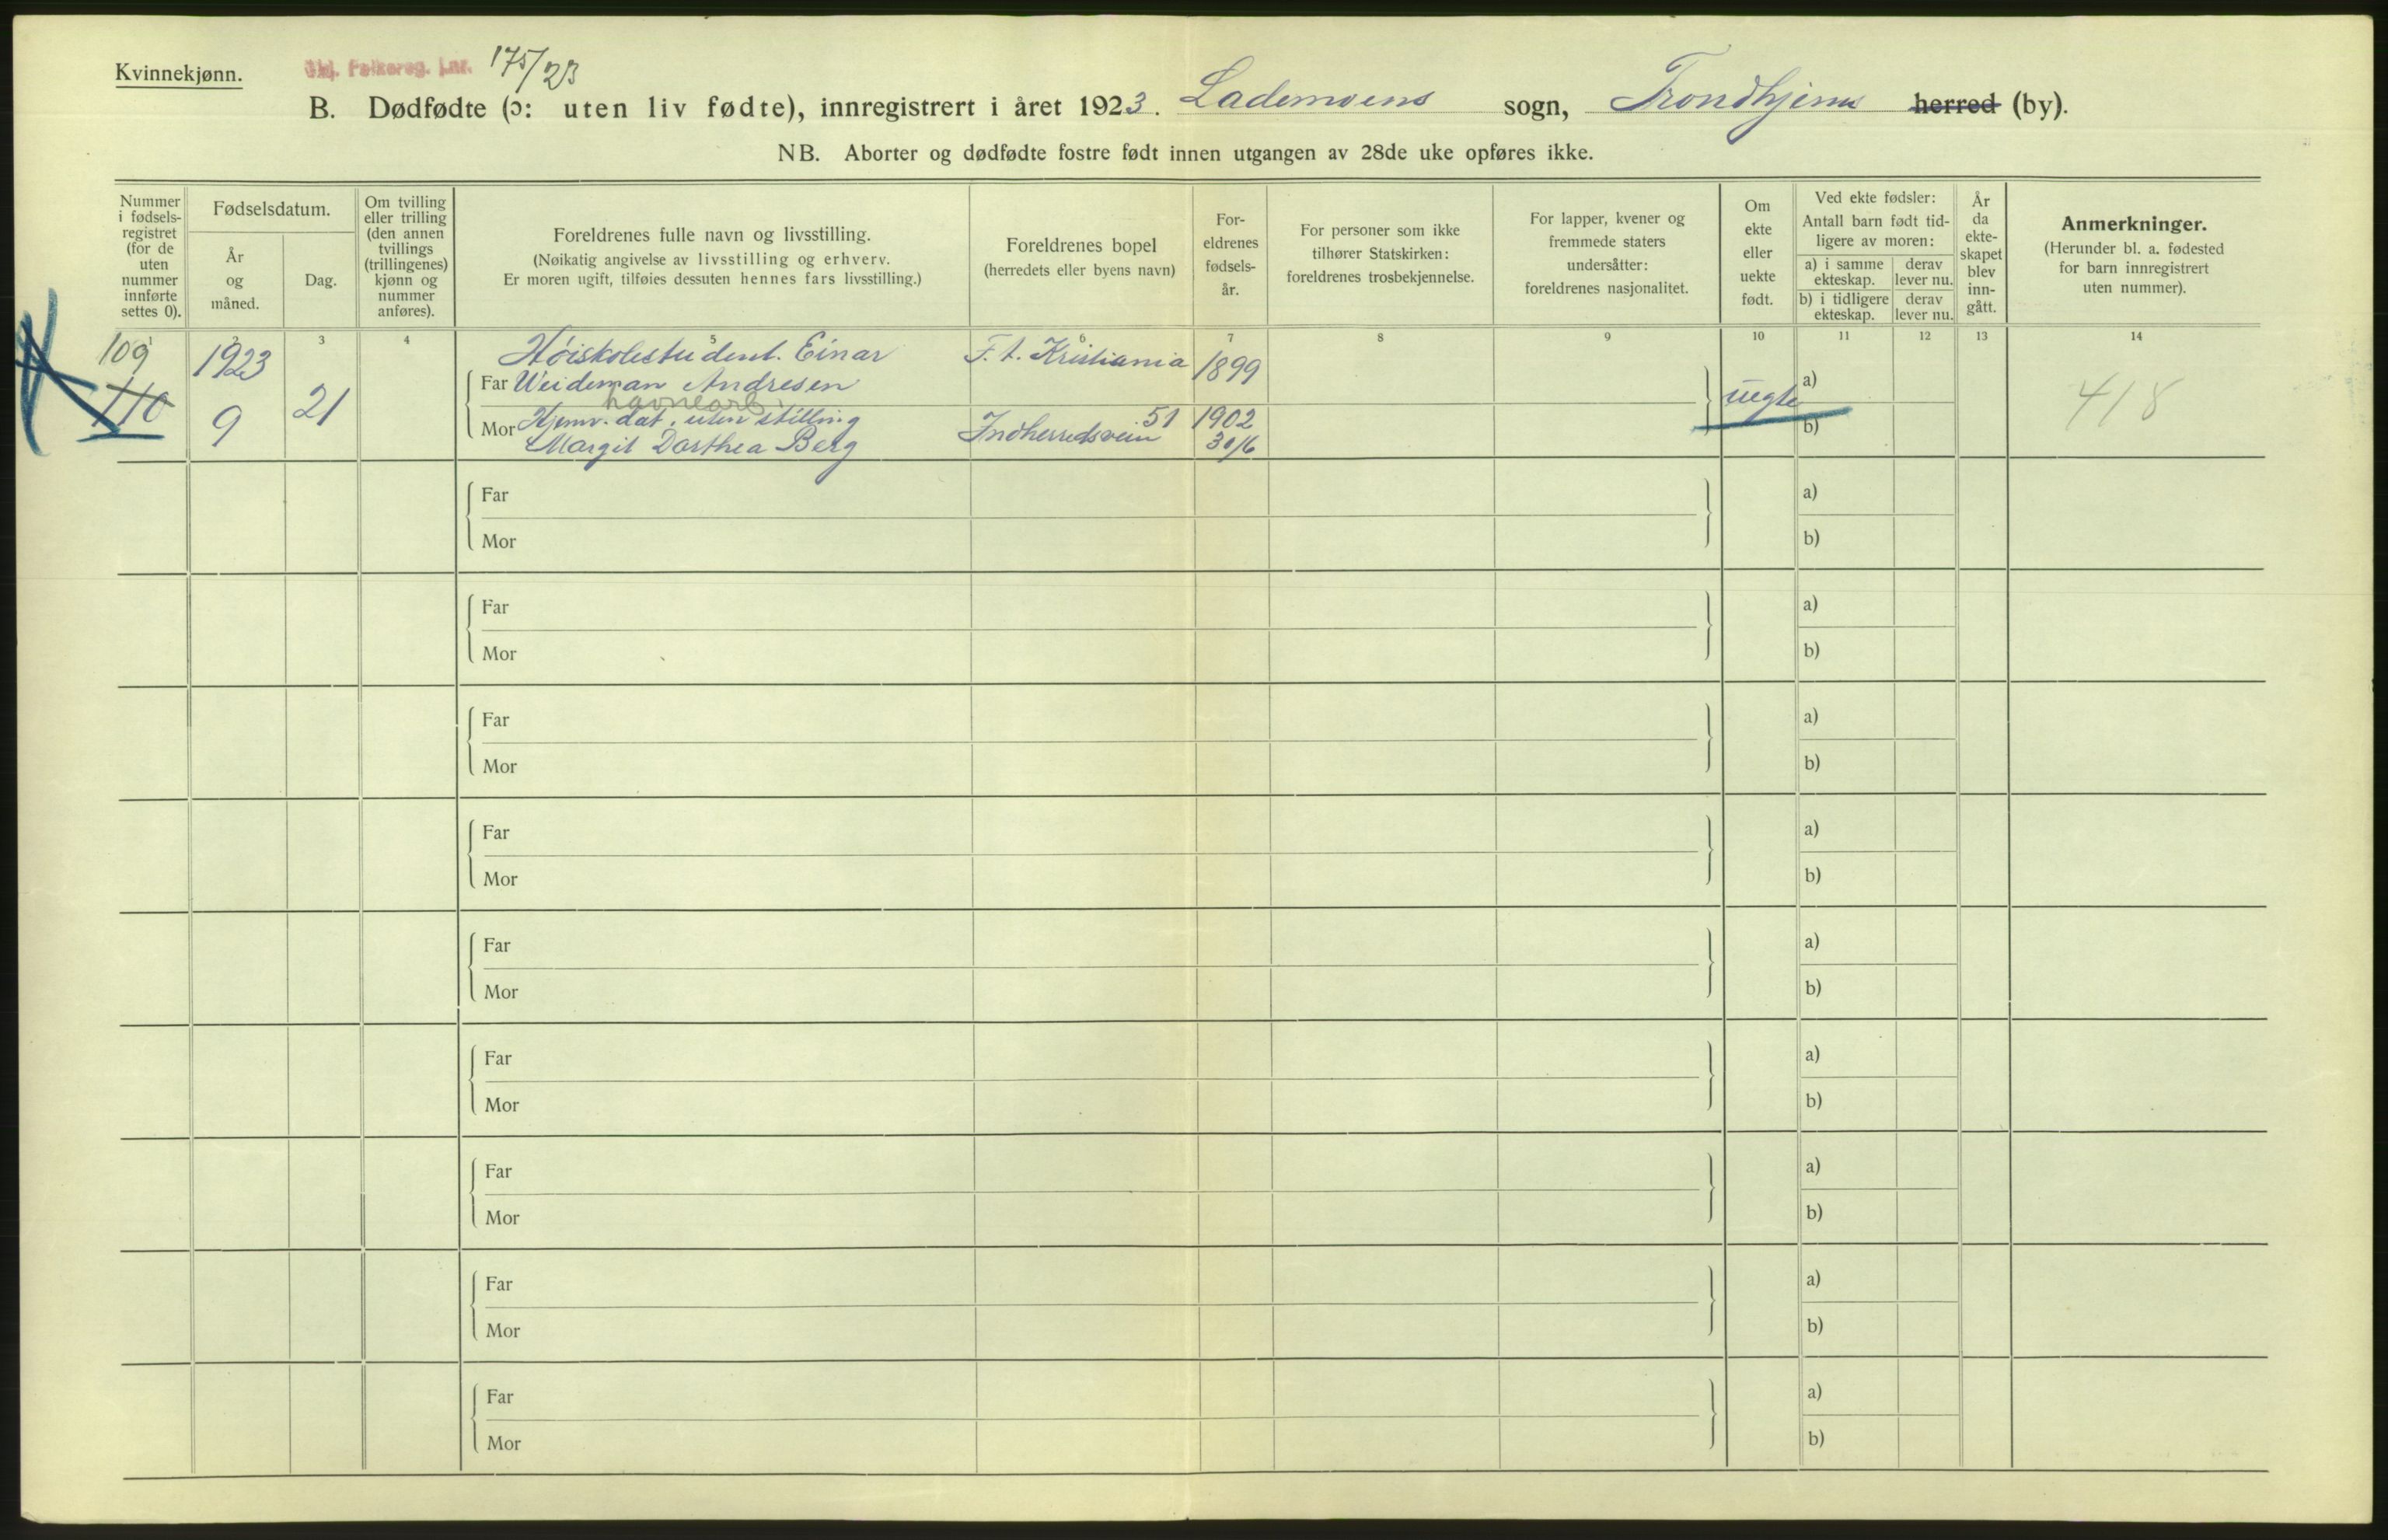 Kvinnekjønn.
Folkereg. j.nr. 175/23
B. Dødfødte (ɔ: uten liv fødte), innregistrert i året 1923. Lademoens sogn, Trondhjems herred (by).
NB. Aborter og dødfødte fostre født innen utgangen av 28de uke opføres ikke.
Nummer
i fødsels-
registret
(for de
uten
nummer
innførte
settes 0).
Fødselsdatum.
År
og
måned.
Dag.
Om tvilling
eller trilling
(den annen
tvillings
(trillingenes)
kjønn og
nummer
anføres).
Foreldrenes fulle navn og livsstilling.
(Nøikatig angivelse av livsstilling og erhverv.
Er moren ugift, tilføies dessuten hennes fars livsstilling.)
Foreldrenes bopel
(herredets eller byens navn)
For-
eldrenes
fødsels-
år.
For personer som ikke
tilhører Statskirken:
foreldrenes trosbekjennelse.
For lapper, kvener og
fremmede staters
undersåtter:
foreldrenes nasjonalitet.
Om
ekte
eller
uekte
født.
Ved ekte fødsler:
Antall barn født tid-
ligere av moren:
a) i samme
ekteskap.
derav
lever nu.
b) i tidligere
ekteskap.
derav
lever nu.
År
da
ekte-
skapet
blev
inn-
gått.
Anmerkninger.
(Herunder bl. a. fødested
for barn innregistrert
uten nummer).
1 2 3 4 5 6 7 8 9 10 11 12 13 14
109
110
1923
9
21
Høiskolestudent. Einar
Far Weideman Andresen
F. t. Kristiania
1899
havnearb.
Mor Hjemv. dat. uten stilling
Margit Dorthea Berg
Indherredsvein 51
1902
30/6
uegte
a)
b)
418
Far
Mor
a)
b)
Far
Mor
a)
b)
Far
Mor
a)
b)
Far
Mor
a)
b)
Far
Mor
a)
b)
Far
Mor
a)
b)
Far
Mor
a)
b)
Far
Mor
a)
b)
Far
Mor
a)
b)